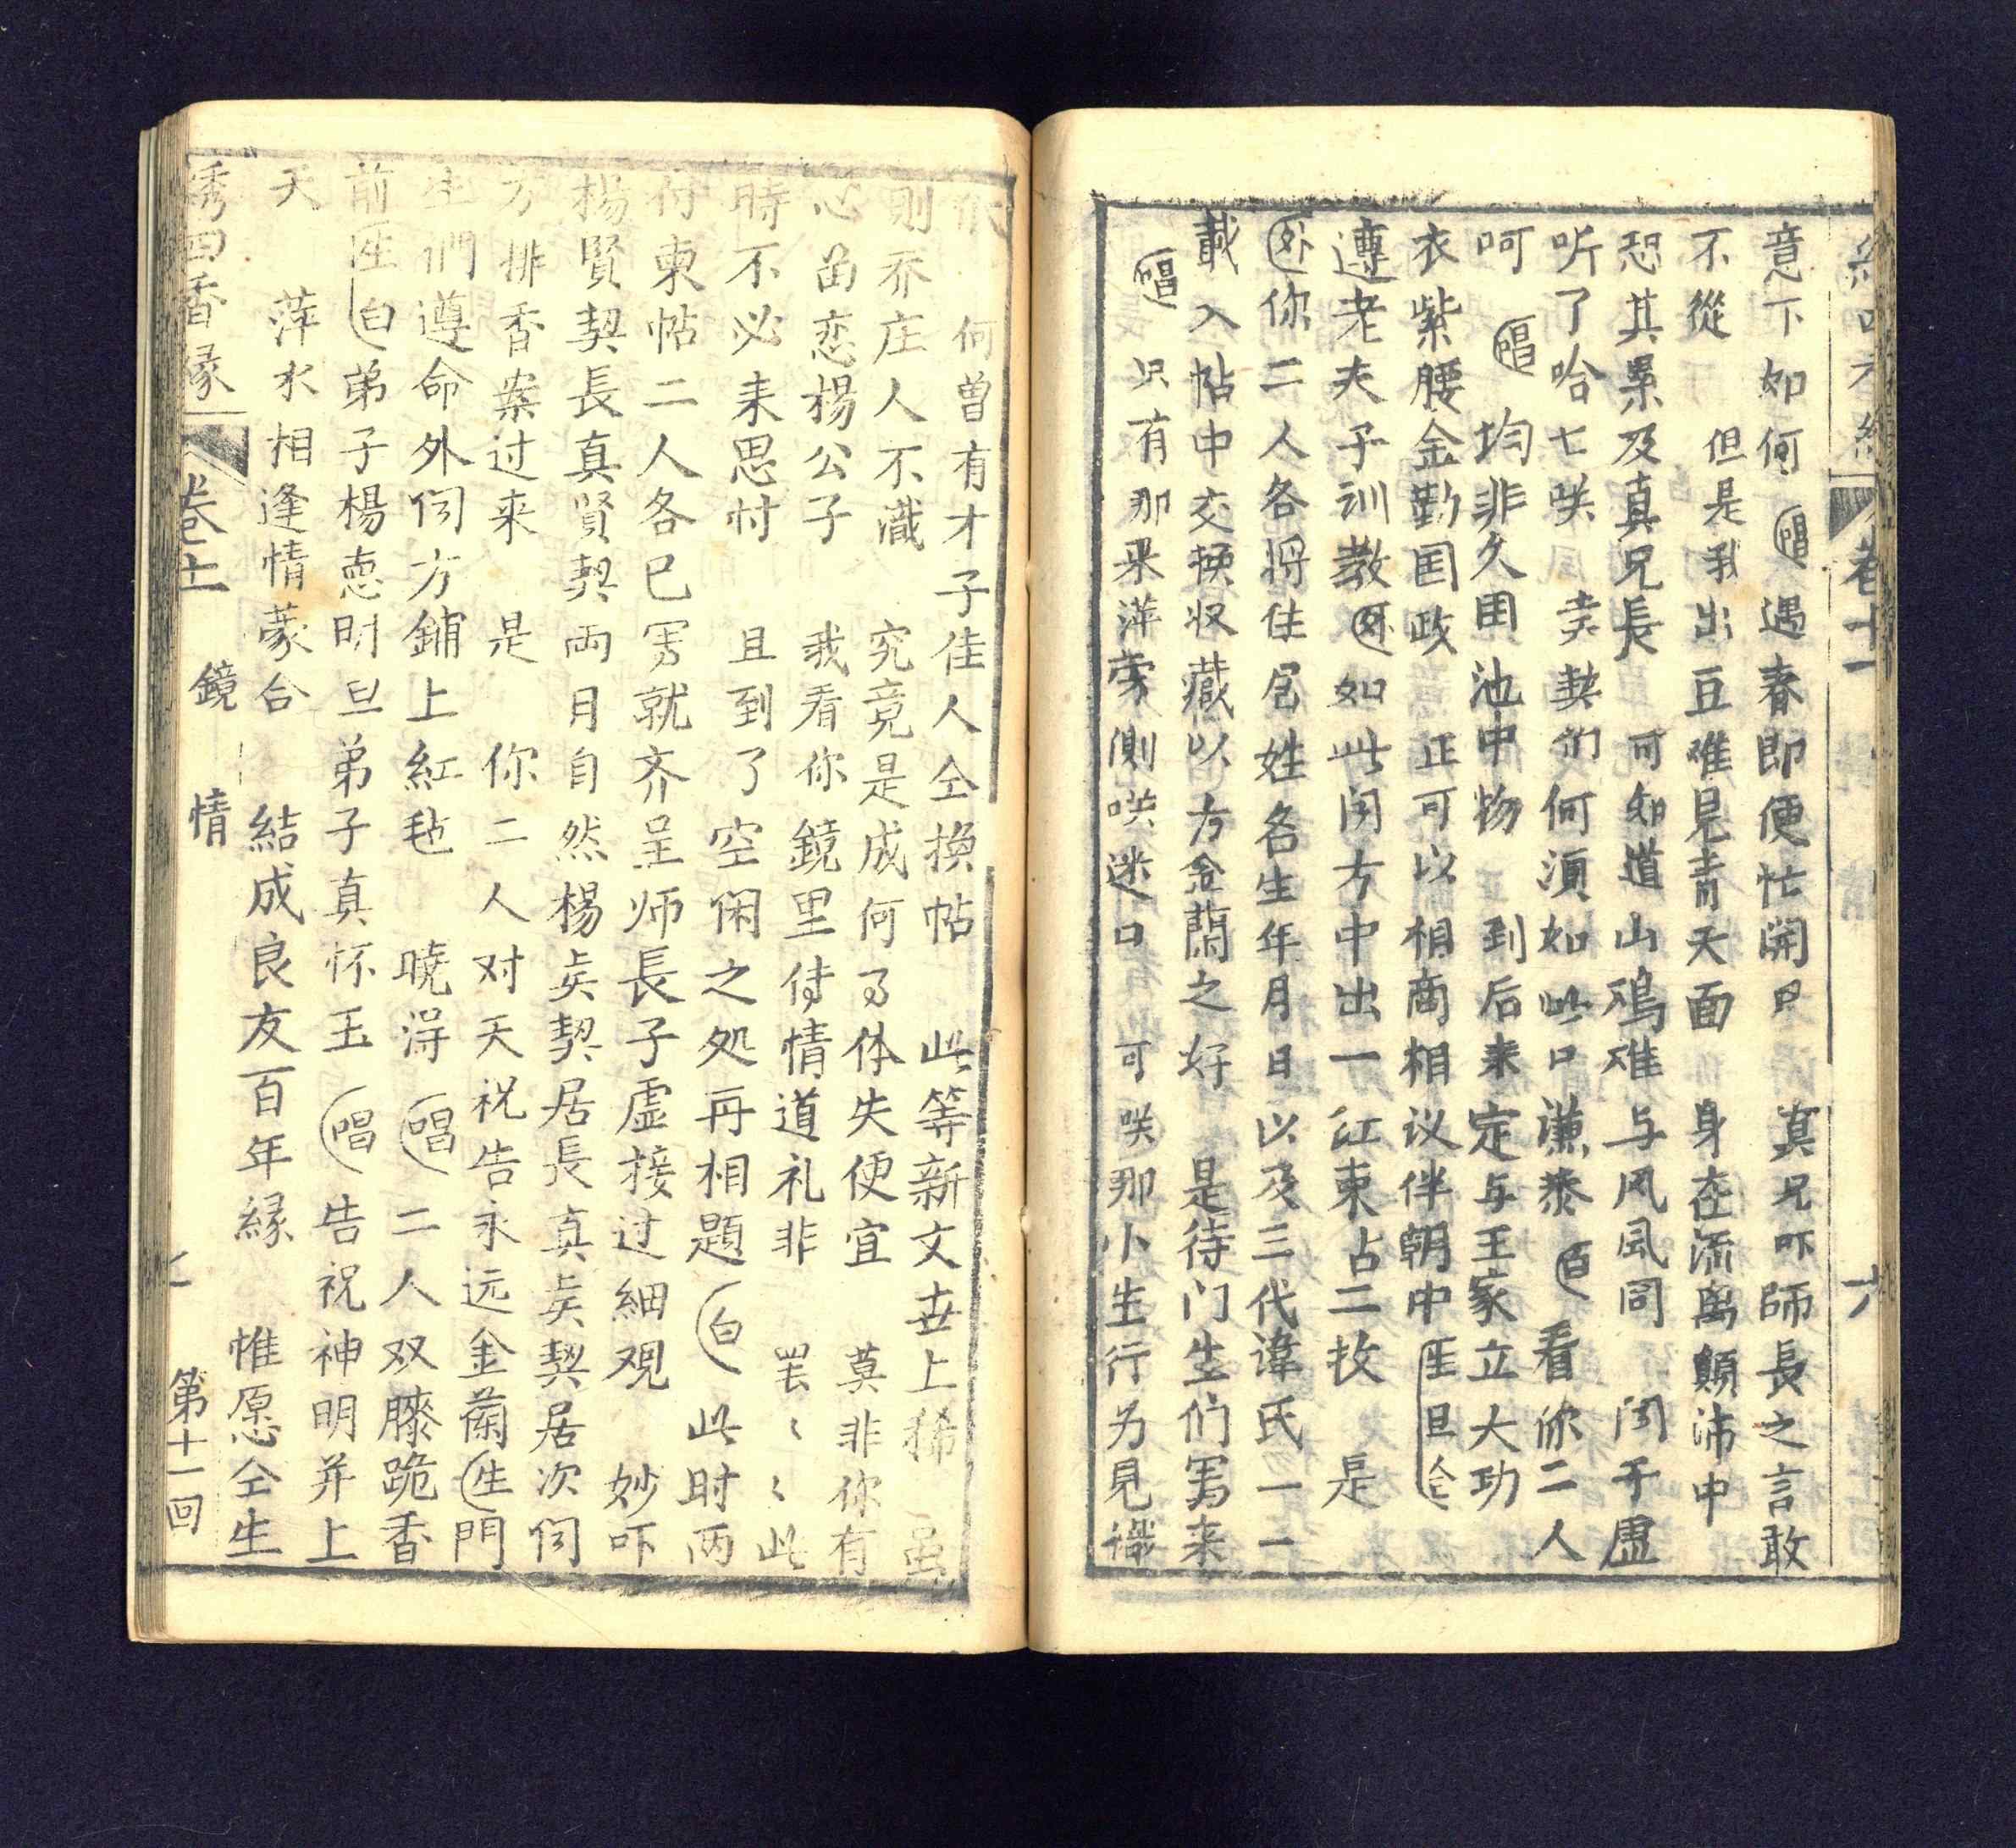 卷十一 六
意下如何 唱 遇春即便忙開口 真兄吓師長之言敢
不從 但是我出豆难見青天面 身在流离顛沛中
恐其累及真兄長 可知道山鳮难与凤凰同 问于虚
听了哈七咲 賣契们何須如此口谦恭 白 看你二人
呵 唱 均非久困池中物 到后来定与王家立大功
衣紫腰金勤国政 正可以相商相议伴朝中 生旦仝 是
遵老夫子训教 外 如此闵方中出一红柬占二枚
外 你二人各将住居姓名生年月日以及三代諱氏一一
載入帖中交换收藏以为金蘭之好 是待门生们寫来
唱 只有那采萍旁側咲迷口 可咲那小生行为見識
低 何曾有才子佳人仝换帖 此等新文世上稀 虽
則乔庄人不識 究竟是成何了体失便宜 莫非你有
心畄恋楊公子 我看你鏡里侍情道礼非 罢ミミ此
時不必来思忖 且到了空閑之处再相題 白 此时两
付柬帖二人各已寫就齐呈师長子虚接过細观 妙吓
楊賢契長真賢契两月自然楊矣契居長真矣契居次伺
方排香案过来 是 你二人对天祝告永远金蘭 生 門
生們遵命外伺方鋪上紅毡 曉得 唱 二人双膝跪香
前 生白 弟子楊悳明 旦 弟子真怀玉 唱 告祝神明并上
天 萍水相逢情蒙合 結成良友百年緣 惟愿仝生
绣四香缘 卷十一 鏡 情 七 第十一回